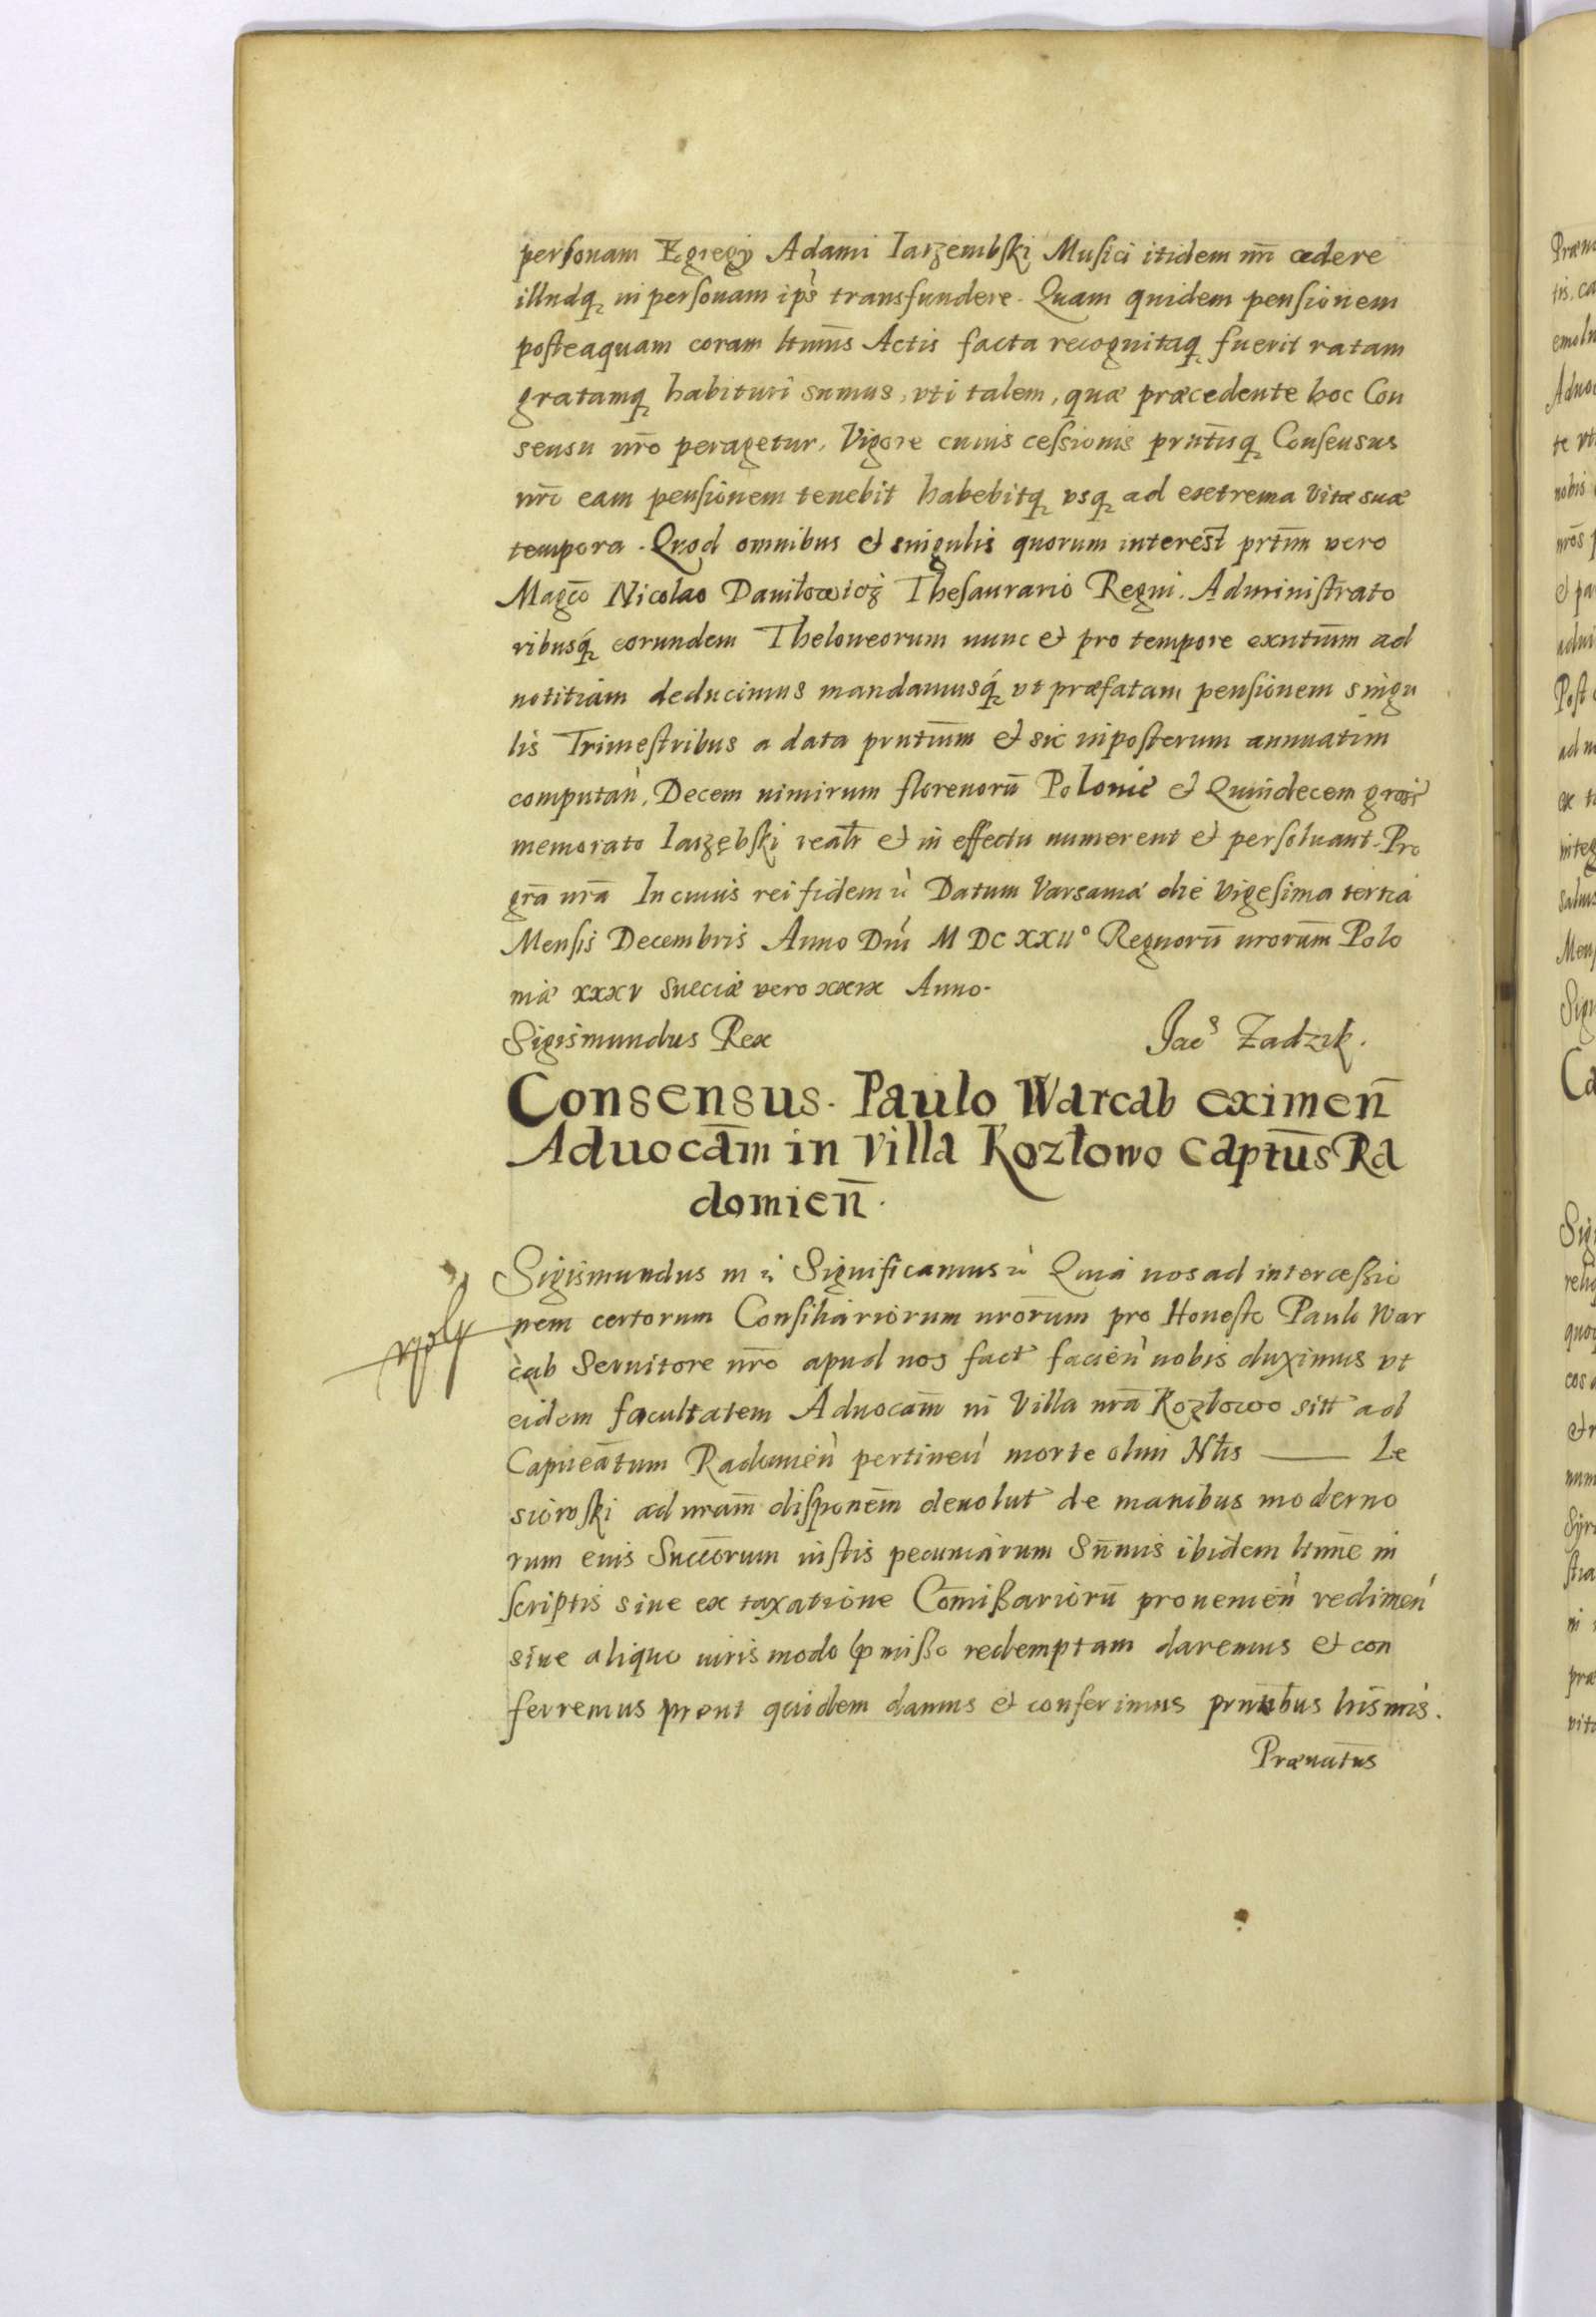 personam Egregy Adami Iarzembski Musici itidem nr̄i cedere
illudq̨ in personam ips̀ transfundere. Quam quidem pensionem
posteaquam coram ltimīs Actis facta recognitaq̨ fuerit ratam
gratamq̨ habituri sumus, vti talem, quæ præcedente hoc Con
sensu nr̄o peragetur. Vigore cuius cessionis prn̄tisq̨ Consensus
nr̄i eam pensionem tenebit habebitq̨ vsq̨ ad extrema vitæ suæ
tempora. Quod omnibus et singulis quorum interest prt̄im vero
Magc̄o Nicolao Daniłowicz Thesaurario Regni. Administrato
ribusq̨ eorundem Theloneorum nunc et pro tempore exn̄tium ad
notitiam deducimus mandamusq̨ vt præfatam pensionem singu
lis Trimestribus a data prn̄tium et sic inposterum annuatim
computan̄, Decem nimirum florenorū Polonic̀ et Quindecem gros̀
memorato Iarzębski realr̄ et in effectu numerent et persoluant. Pro
grā nrā In cuius rei fidem Datum Varsauiæ die vigesima tertia
Mensis Decembris Anno Dn̄i M DC XXII° Regnorū nrorūm Polo
niæ XXXV Sueciæ vero XXIX Anno.
Sigismundus Rex Jacˢ Zadzik.
Consensus. Paulo Warcab eximen̄
Aduocām in villa Kozłowo Captūs Ra
domien̄.
Sigismundus III Significamus Quia nos ad intercessio
nem certorum Consiliariorum nrorūm pro Honesto Paulo War
cab Seruitore nr̄o apud nos fact̀ facien̄ nobis duximus vt
eidem facultatem Aduocām in Villa nrā Kozłowo sitt̀ ad
Capneātum Radomien̄ pertinen̄ morte olim Ntīs — Le
sioroski ad nrām disponēm deuolut̀ de manibus moderno
rum eius Succōrum iustis pecuniarum Sum̄is ibidem ltimē in
scriptis siue ex taxatione Com̄issariorū prouenien̄ redimen̄
siue aliquo iuris modo pmisso redemptam daremus et con
ferremus prout quidem damus et conferimus prn̄tibus lris nris.
Prænatūs